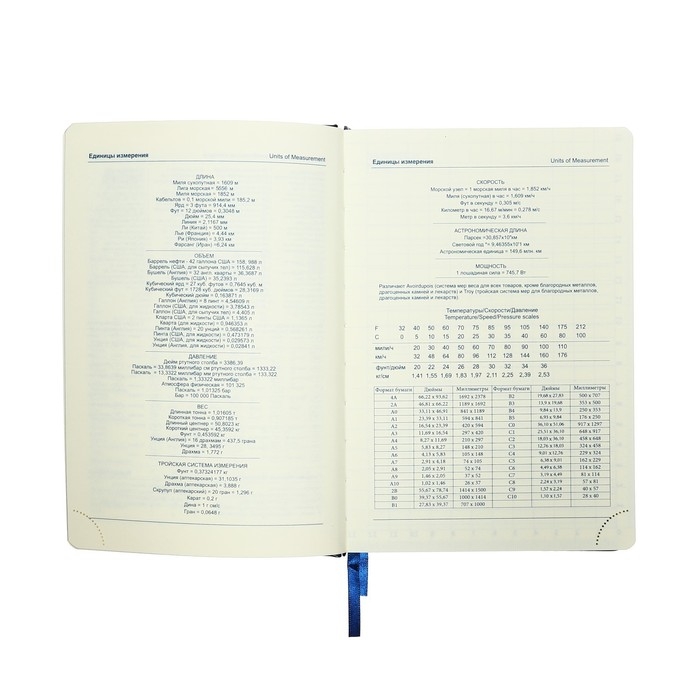 Единицы измерения
Units of Measurement
ДЛИНА
Миля сухопутная = 1609 м
Лига морская = 5556 м
Миля морская = 1852 м
Кабельтов = 0,1 морской мили = 185,2 м
Ярд = 3 фута = 914,4 мм
Фут = 12 дюймов = 0,3048 м
Дюйм = 25,4 мм
Линия = 2,1167 мм
Ли (Китай) = 500 м
Лье (Франция) = 4,44 км
Ри (Япония) = 3,93 км
Фарсанг (Иран) =6,24 км
ОБЪЕМ
Баррель нефти - 42 галлона США = 158, 988 л
Баррель (США, для сыпучих тел) = 115,628 л
Бушель (Англия) = 32 англ. кварты = 36,3687 л
Бушель (США) = 35,2393 л
Кубический ярд = 27 куб. футов = 0,7645 куб. м
Кубический фут = 1728 куб. дюймов = 28,3169 л
Кубический дюйм = 0,163871 л
Галлон (Англия) = 8 пинт = 4,54609 л
Галлон (США, для жидкости) = 3,78543 л
Галлон (США, для сыпучих тел) = 4,405 л
Кларта США = 2 пинты США = 1,1365 л
Кварта (для жидкости) = 0,946353 л
Пинта (Англия) = 20 унций = 0,568261 л
Пинта (США, для жидкости) = 0,473179 л
Унция (США, для жидкости) = 0,029573 л
Унция (Англия, для жидкости) = 0,02841 л
ДАВЛЕНИЕ
Дюйм ртутного столба = 3386,39
Паскаль = 33,8639 миллибар см ртутного столба = 1333,22
Паскаль = 13,3322 миллибар мм ртутного столба = 133,322
Паскаль = 1,33322 миллибар
Атмосфера физическая = 101 325
Паскаль = 1,01325 бар
Бар = 100 000 Паскаль
ВЕС
Длинная тонна = 1,01605 т
Короткая тонна = 0,907185 т
Длинный центнер = 50,8023 кг
Короткий центнер = 45,3592 кг
Фунт = 0,453592 кг
Унция (Англия) = 16 драхмам = 437,5 грана
Унция = 28, 3495 г
Драхма = 1,772 г
ТРОЙСКАЯ СИСТЕМА ИЗМЕРЕНИЯ
Фунт = 0,37324177 кг
Унция (аптекарская) = 31,1035 г
Драхма (аптекарская) = 3,888 г
Скрупул (аптекарский) = 20 гран = 1,296 г
Карат = 0,2 г
Дина = 1 г см/с
Гран = 0,0648 г
Единицы измерения
Units of Measurement
СКОРОСТЬ
Морской узел = 1 морская миля в час = 1,852 км/ч
Миля (сухопутная) в час = 1,609 км/ч
Фут в секунду = 0,305 м/с
Километр в час = 16,67 м/мин = 0,278 м/с
Метр в секунду = 3,6 км/ч
АСТРОНОМИЧЕСКАЯ ДЛИНА
Парсек =30,857х10¹²км
Световой год = 9,46355х10¹²км
Астрономическая единица = 149,6 млн. км
МОЩНОСТЬ
1 лошадиная сила = 745,7 Вт
Различают Avoirdupois (система мер веса для всех товаров, кроме благородных металлов,
драгоценных камней и лекарств) и Troy (тройская система мер для благородных металлов,
драгоценных камней и лекарств)
Температуры/Скорости/Давление
Temperature/Speed/Pressure scales
F 32 40 50 60 70 75 85 95 105 140 175 212
C 0 5 10 15 20 25 30 35 40 60 80 100
мили/ч 20 30 40 50 60 70 80 90 100 110
км/ч 32 48 64 80 96 112 128 144 160 176
фунт/дюйм 20 22 24 26 28 30 32 34 36
кг/см 1,41 1,55 1,69 1,83 1,97 2,11 2,25 2,39 2,53
Формат бумаги Дюймы Миллиметры Формат бумаги Дюймы Миллиметры
4A 66,22 x 93,62 1682 x 2378 B2 19,68 x 27,83 500 x 707
2A 46,81 x 66,22 1189 x 1682 B3 13,9 x 19,68 353 x 500
A0 33,11 x 46,81 841 x 1189 B4 9,84 x 13,9 250 x 353
A1 23,39 x 33,11 594 x 841 B5 6,93 x 9,84 176 x 250
A2 16,54 x 23,39 420 x 594 C0 36,10 x 51,06 917 x 1297
A3 11,69 x 16,54 297 x 420 C1 25,51 x 36,10 648 x 917
A4 8,27 x 11,69 210 x 297 C2 18,03 x 36,10 458 x 648
A5 5,83 x 8,27 148 x 210 C3 12,76 x 18,03 324 x 458
A6 4,13 x 5,83 105 x 148 C4 9,01 x 12,76 229 x 324
A7 2,91 x 4,13 74 x 105 C5 6,38 x 9,01 162 x 229
A8 2,05 x 2,91 52 x 74 C6 4,49 x 6,38 114 x 162
A9 1,46 x 2,05 37 x 52 C7 3,19 x 4,49 81 x 114
A10 1,02 x 1,46 26 x 37 C8 2,24 x 3,19 57 x 81
2B 55,67 x 78,74 1414 x 1500 C9 1,57 x 2,24 40 x 57
B0 39,37 x 55,67 1000 x 1414 C10 1,10 x 1,57 28 x 40
B1 27,83 x 39,37 707 x 1000